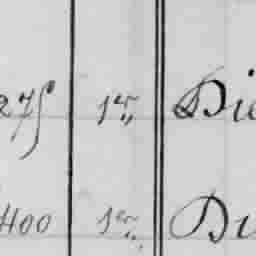 275 1er Die
400 1er Di